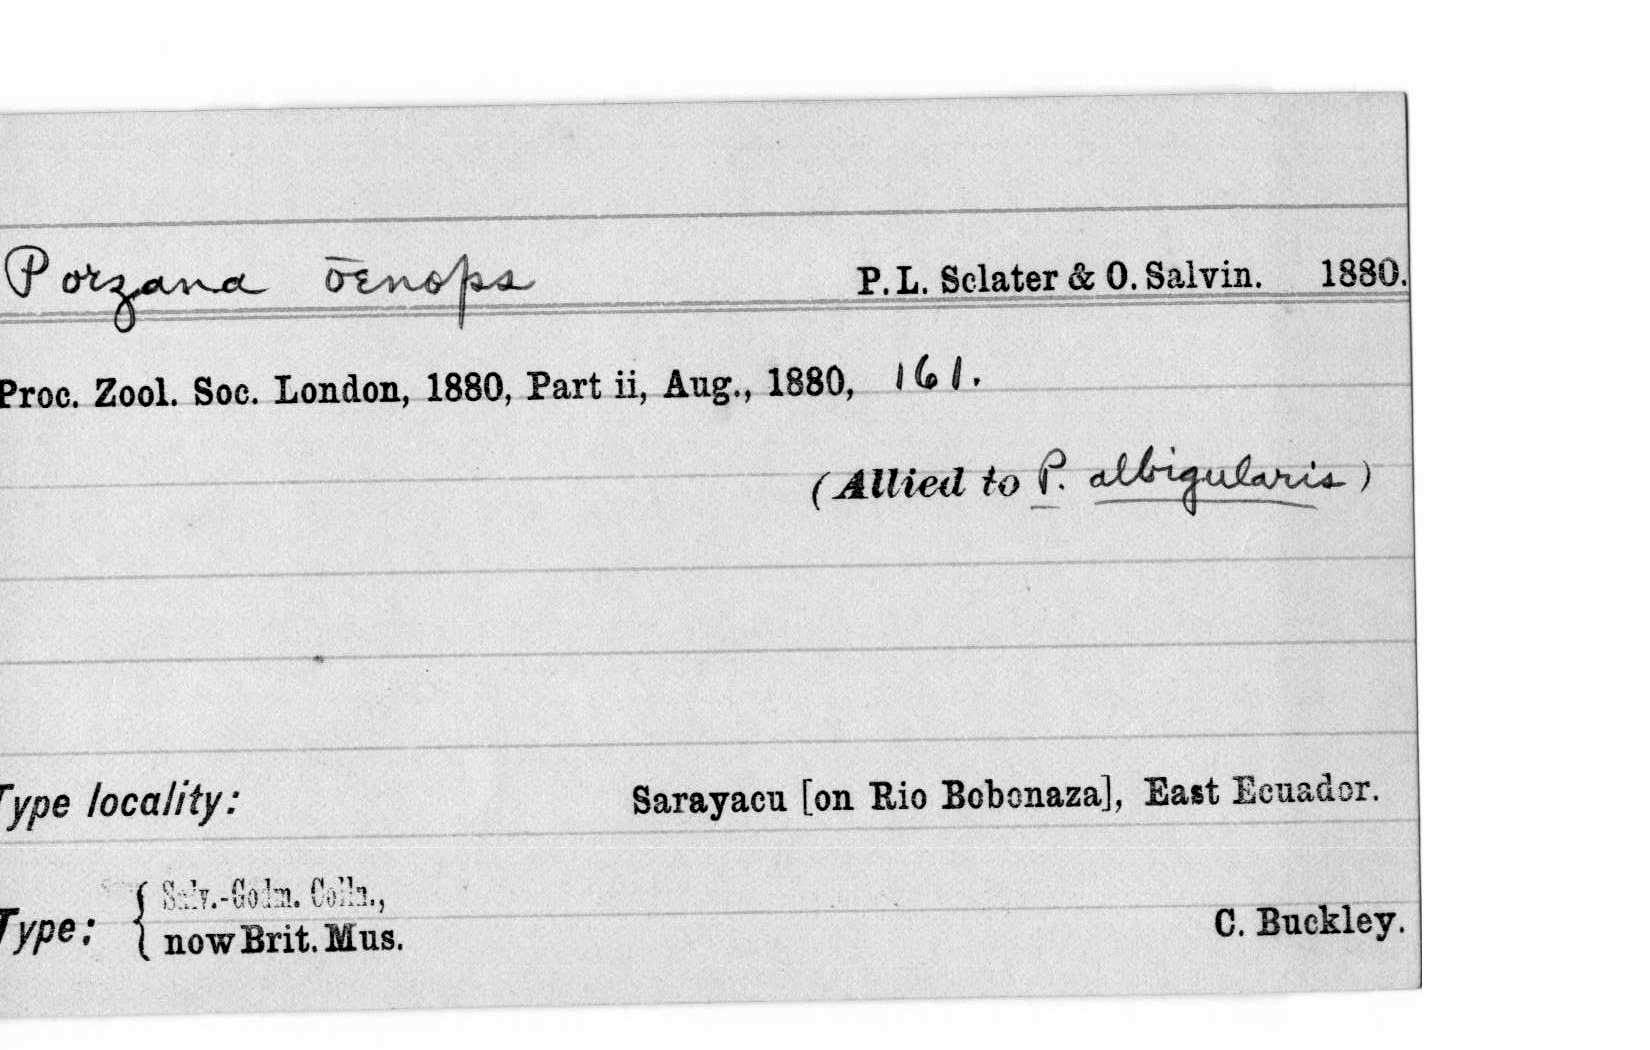 Porzana œnops P. L. Sclater & O. Salvin. 1880.
Proc. Zool. Soc. London, 1880, Part ii, Aug., 1880, 161.
(Allied to P. albigularis)
Type locality: Sarayacu [on Rio Bobonaza], East Ecuador.
Salv.-Godm. Colln.,
Type: { now Brit. Mus. C. Buckley.